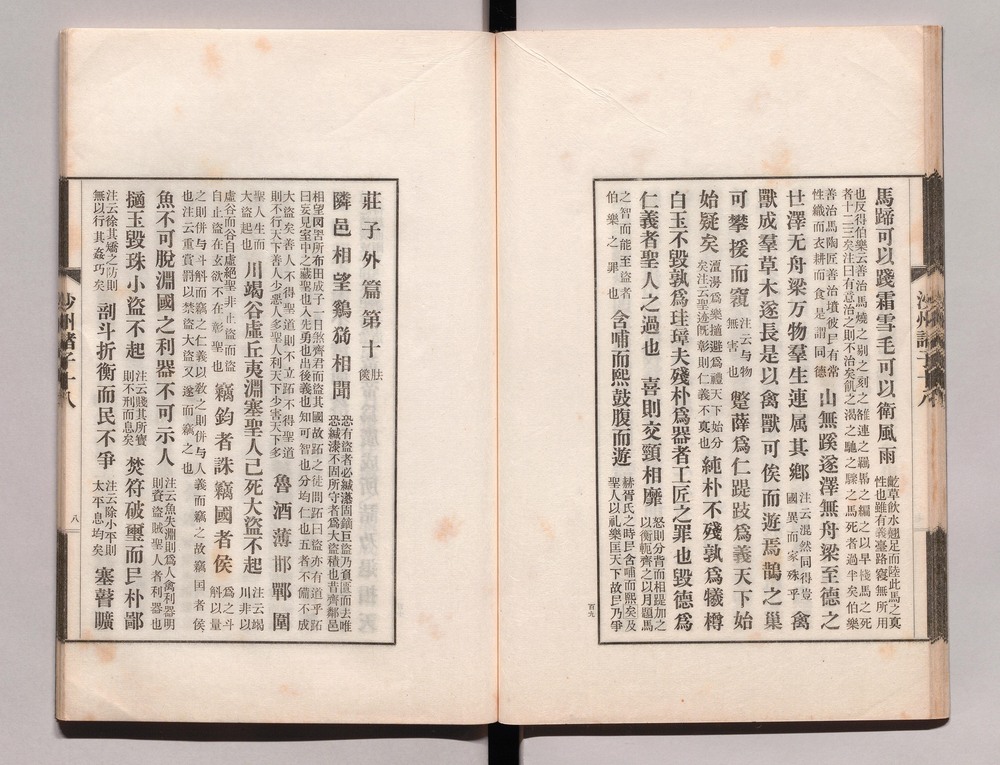 馬蹄可以踐霜雪毛可以衛風雨
齕草飲水翹足而陸此馬之真
性也雖有義臺路寢無所用
也反得伯樂云善治馬燒之剔之刻之雒連之羈馽之編之以早棧馬之死
者十二三矣注曰有意治之則不治矣飢之渴之馳之驟之馬死者過半矣伯樂
善治馬陶匠善治埴彼民有常
性織而衣耕而食是謂同德
山無蹊遂澤無舟梁至德之
世澤无舟梁万物羣生連属其鄉
注云混然同得豈
國異而家殊乎
禽
獸成羣草木遂長是以禽獸可俟而遊焉鵲之巢
可攀援而窺
注云与物
無害也
蹩薛為仁踶跂爲義天下始
始疑矣
澶漫爲樂擿避爲禮天下始分
矣注云聖迹既彰則仁義不真也
純朴不殘孰爲犧樽
白玉不毀孰爲珪璋夫殘朴爲器者工匠之罪也毀德爲
仁義者聖人之過也
喜則交頸相靡
怒則分背而相踶加之
以衡軛齊之以月題馬
之智而能至盜者
伯樂之罪也
含哺而熙鼓腹而遊
赫胥氏之時民含哺而熙矣及
聖人以礼樂匡天下故民乃爭
百九
沙州諸子十八
莊子外篇第十
胠
篋
隣邑相望鷄猗相聞
恐有盜者必緘縢固鐍巨盜乃負匱而去唯
恐緘縢不固所守者爲大盜積也昔齊鄰邑
相望罔罟所布田成子一日煞齊君而盜其國故跖之徒問跖曰盜亦有道乎跖
曰妄見室中之蔵聖也入先勇也出後義也知可智也分均仁也五者不備不成
大盜矣善人不得聖道則不立跖不得聖道
則不行天下善人少惡人多聖人利天下少害天下多
魯酒薄邯鄲圍
聖人生而
大盜起也
川竭谷虛丘夷淵塞聖人已死大盜不起
注云竭
川非以
虛谷而谷自虛絕聖非止盜而盜
自止盜在玄欲不在彰聖也
竊鈎者誅竊國者侯
爲之斗
斛以量
之則併与斗斛而竊之仁義以教之則併与人義而竊之故竊国者侯
也注云重賞罰以禁盜大盜又遂而竊之也
魚不可脫淵國之利器不可示人
注云魚失淵則爲人禽利器明
則資盜賊聖人者利器也
擿玉毀珠小盜不起
注云賤其所寳
則不刑而息矣
焚符破璽而民朴鄙
注云徐其矯之防則
無以行其姦巧矣
剖斗折衡而民不爭
注云除小平則
太平息均矣
塞瞽曠
沙州諸子十八
八